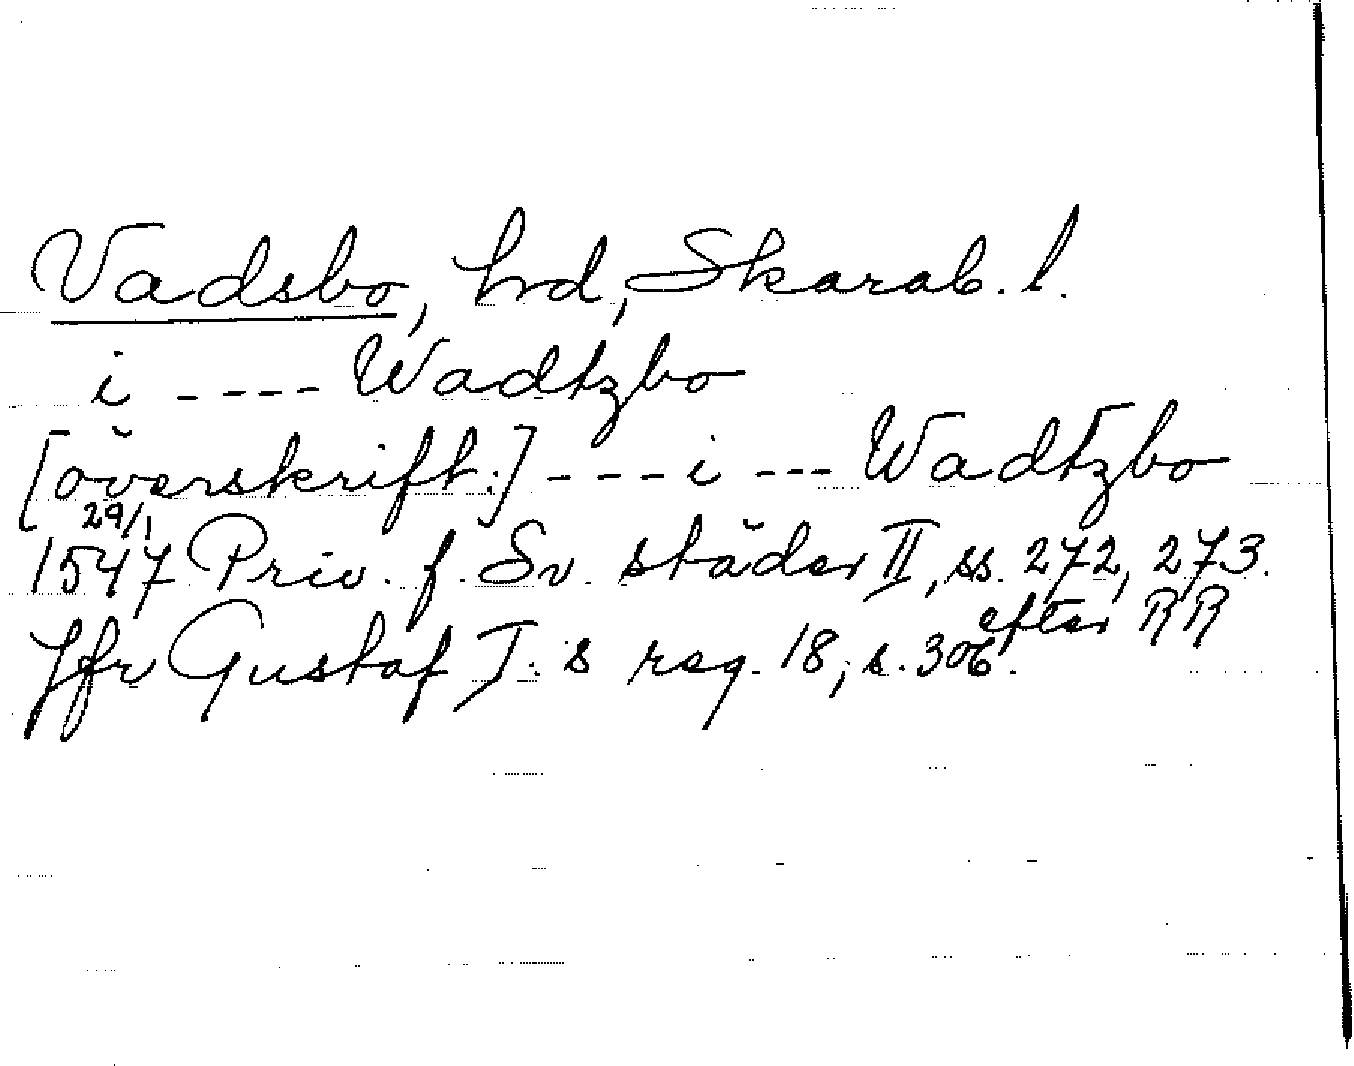 Vadsbo, hrd, Skarab. l.
i ---- Wadtzbo
[överskrift:] --- i --- Wadtzbo
29/1
1547 Priv. f. Sv. städer II, ss. 272, 273.
efter RR
Jfr Gustaf I:s reg. 18, s. 306.